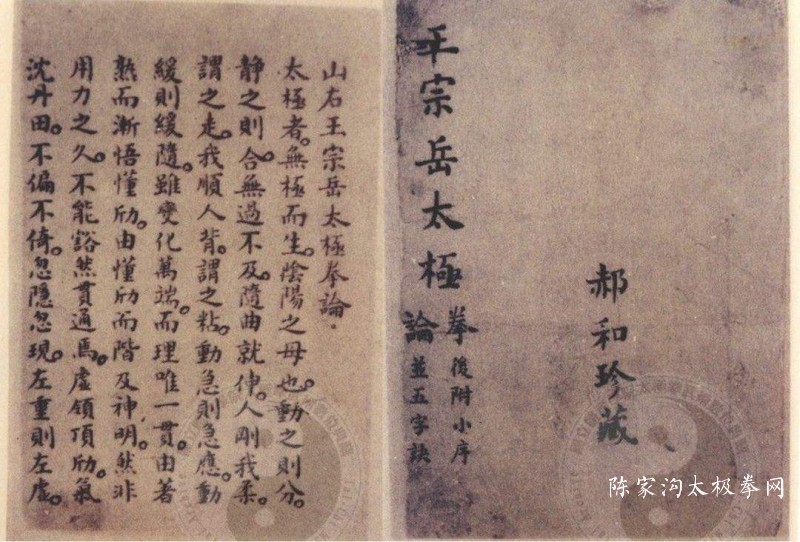 王宗岳太極
拳後附小序
論並五字訣
郝和珍藏
山右王宗岳太極拳論.
太極者。無極而生。陰陽之母也。動之則分。
静之則合。無過不及。隨曲就伸。人剛我柔。
謂之走。我順人背。謂之粘。動急則急應。動
緩則緩隨。雖變化萬端。而理唯一貫。由著
熟而漸悟懂劤。由懂劤而階及神明。然非
用力之久。不能豁然貫通焉。虛領頂劤。氣
沈丹田。不偏不倚。忽隱忽現。左重則左虛。
陈家沟太极拳网